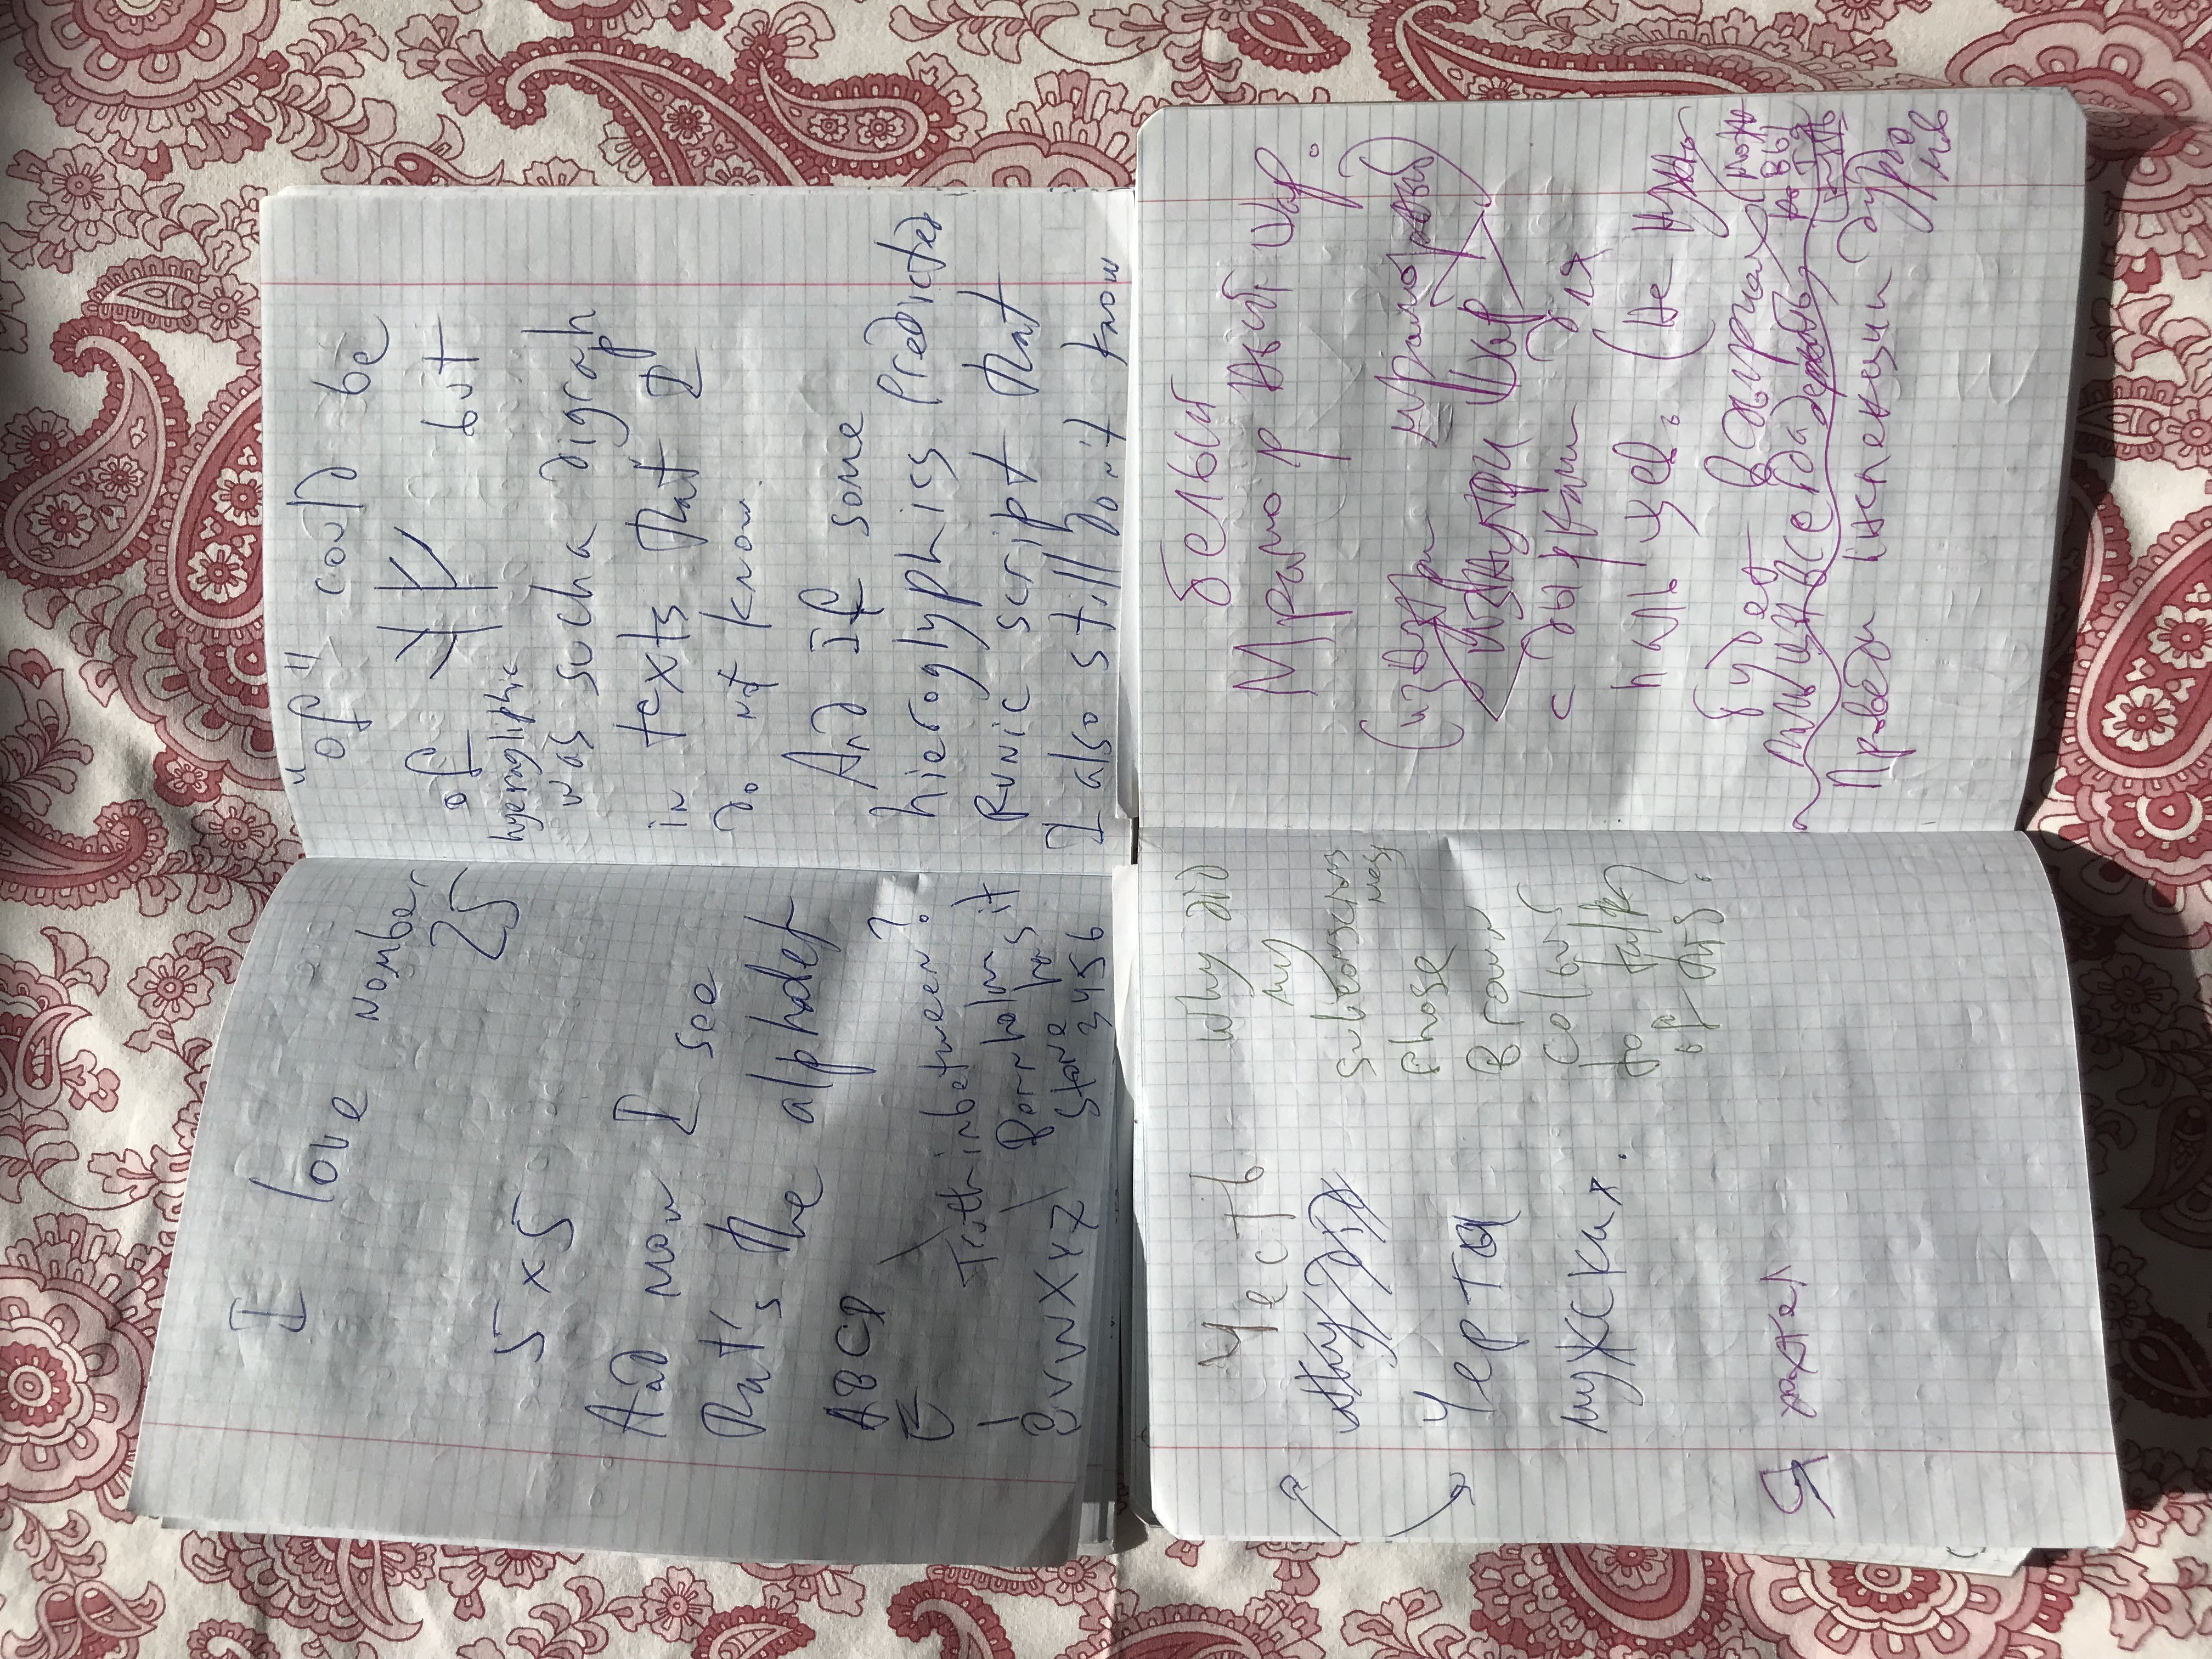 I love number
25
5 x 5
And now I see
That's the alphabet
ABCD
E
I
O
UVWXYZ
Truth inbetween?
Bornholm
Stone has it
3456
"of" could be
of ᛉᚠ but
hyeragliphic
was such a digraph
in texts that I
do not know
And If some
hieroglyphics predicted
Runic script that
I also still don't know
Честь
Why did
Черта
мужская.
Я хотел
Why did
my
subconscious
ness
chose
Brown
colour
to talk
of this?
белый
Мраморный шар.
(изнутри мраморный)
изнутри шар
с дырками для
пальцев. (Не нужно
будет в дырках
пальцы всегда держать
можно
вы
Проведи инспекции дурдо
мов